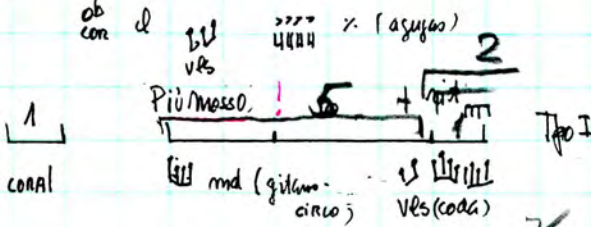 ob
cor
vls
% (agujas)
2
Più mosso. ! 5
1
Tipo I
CORAL
md (gitano-
circo)
vls (coda)